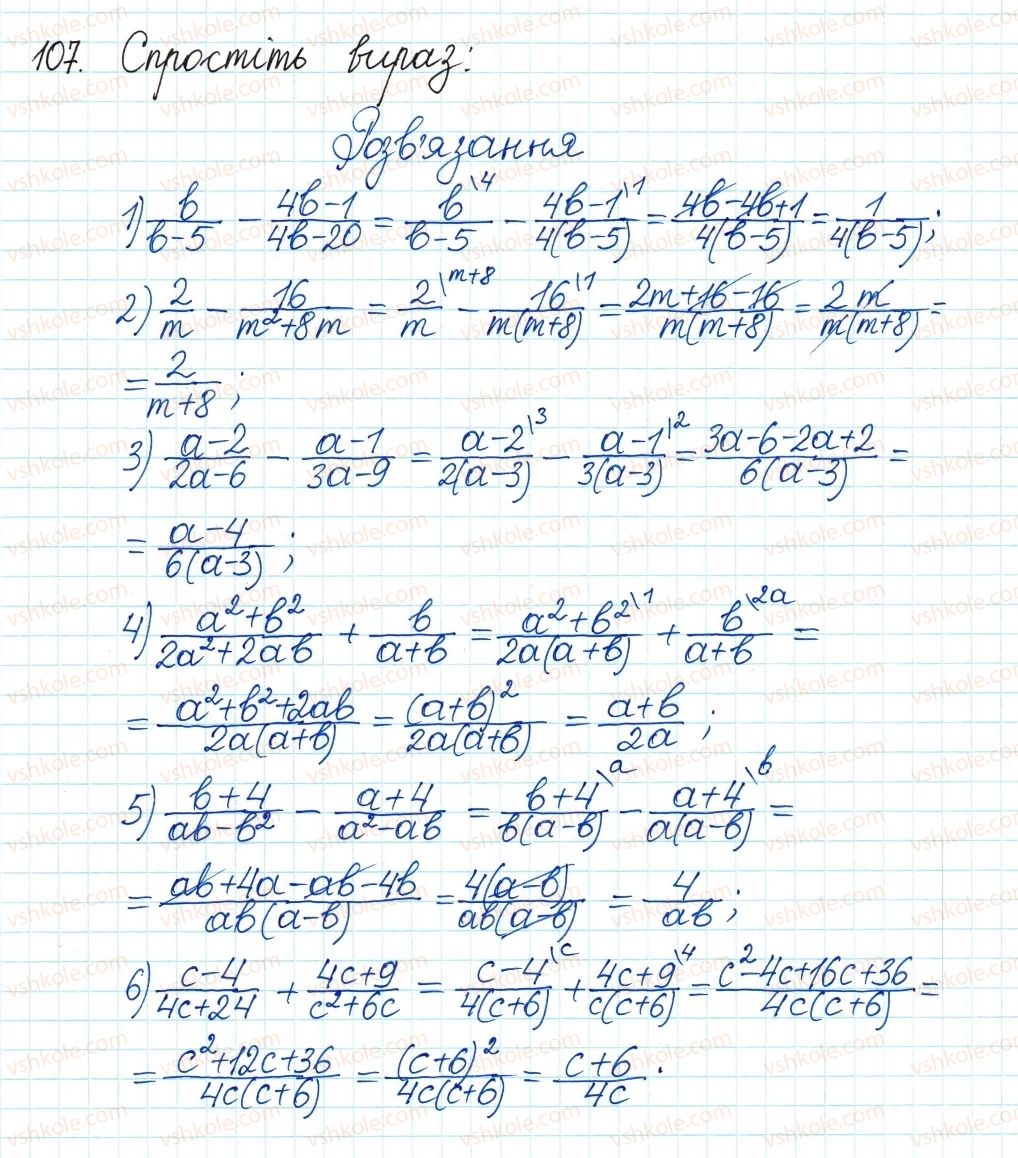 107. Спростіть вираз:
Розв'язання
1) b/(b-5) - (4b-1)/(4b-20) = b\4/(b-5) - (4b-1)\1/(4(b-5)) = (4b-4b+1)/(4(b-5)) = 1/(4(b-5));
2) 2/m - 16/(m²+8m) = 2\m+8/m - 16\1/(m(m+8)) = (2m+16-16)/(m(m+8)) = 2m/(m(m+8)) =
= 2/(m+8);
3) (a-2)/(2a-6) - (a-1)/(3a-9) = (a-2)\3/(2(a-3)) - (a-1)\2/(3(a-3)) = (3a-6-2a+2)/(6(a-3)) =
= (a-4)/(6(a-3));
4) (a²+b²)/(2a²+2ab) + b/(a+b) = (a²+b²)\1/(2a(a+b)) + b\2a/(a+b) =
= (a²+b²+2ab)/(2a(a+b)) = (a+b)²/(2a(a+b)) = (a+b)/2a;
5) (b+4)/(ab-b²) - (a+4)/(a²-ab) = (b+4)\a/(b(a-b)) - (a+4)\b/(a(a-b)) =
= (ab+4a-ab-4b)/(ab(a-b)) = 4(a-b)/(ab(a-b)) = 4/ab;
6) (c-4)/(4c+24) + (4c+9)/(c²+6c) = (c-4)\c/(4(c+6)) + (4c+9)\4/(c(c+6)) = (c²-4c+16c+36)/(4c(c+6)) =
= (c²+12c+36)/(4c(c+6)) = (c+6)²/(4c(c+6)) = (c+6)/4c.